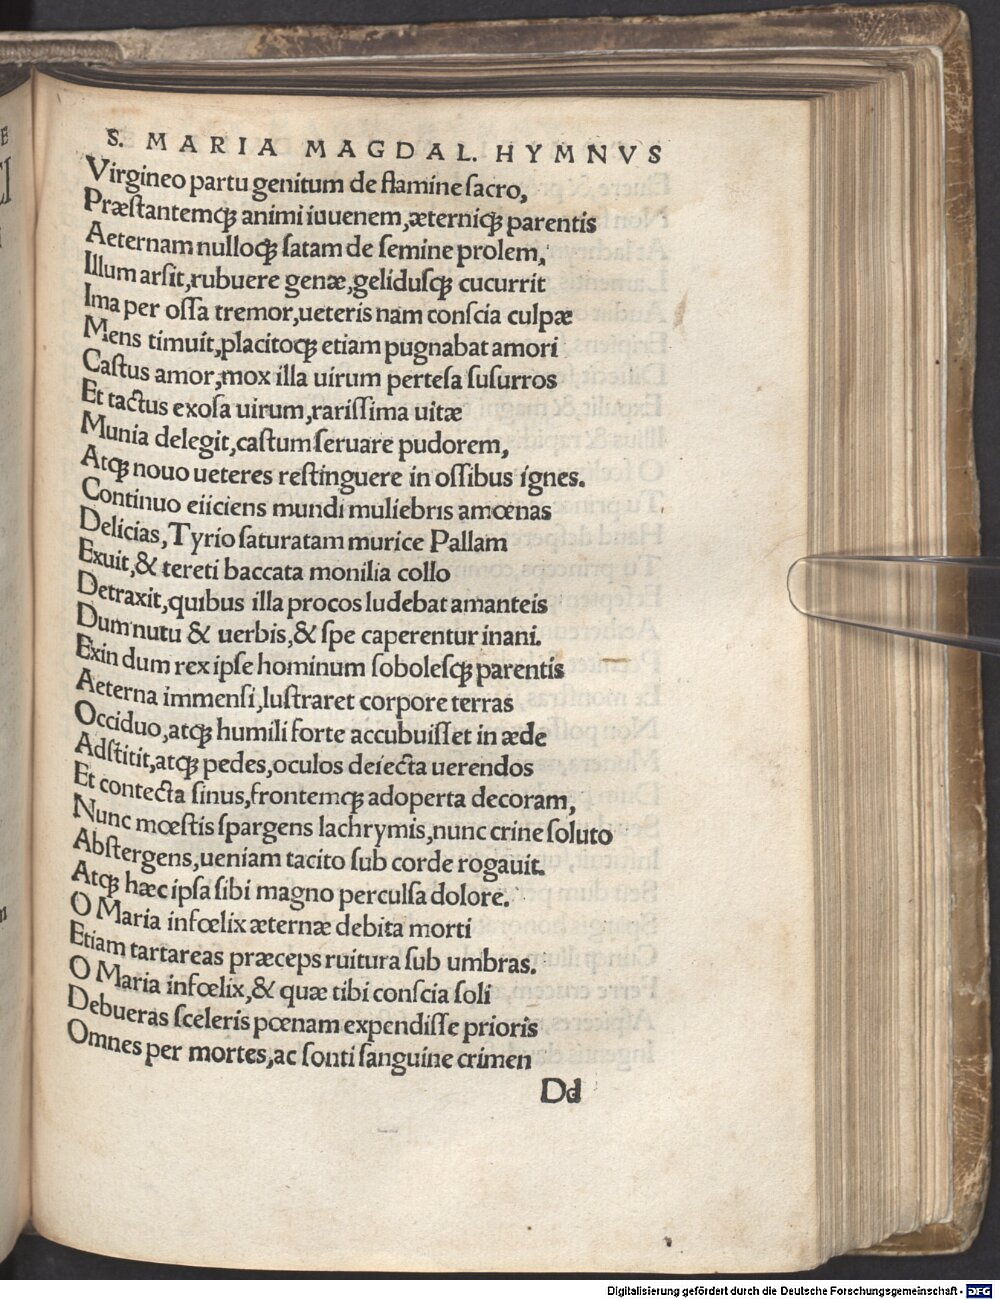 S. MARIA MAGDAL. HYMNVS
Virgineo partu genitum de flamine ſacro,
Præſtantemqꝫ animi iuuenem,æterniqꝫ parentis
Aeternam nulloqꝫ ſatam de ſemine prolem,
Illum arſit,rubuere genæ,geliduſqꝫ cucurrit
Ima per oſſa tremor,ueteris nam conſcia culpæ
Mens timuit,placitoqꝫ etiam pugnabat amori
Caſtus amor,mox illa uirum perteſa ſuſurros
Et tactus exoſa uirum,rariſſima uitæ
Munia delegit,caſtum ſeruare pudorem,
Atqꝫ nouo ueteres reſtinguere in oſſibus ignes.
Continuo eiiciens mundi muliebris amœnas
Delicias,Tyrio ſaturatam murice Pallam
Exuit,& tereti baccata monilia collo
Detraxit,quibus illa procos ludebat amanteis
Dum nutu & uerbis,& ſpe caperentur inani.
Exin dum rex ipſe hominum ſoboleſqꝫ parentis
Aeterna immenſi,luſtraret corpore terras
Occiduo,atqꝫ humili forte accubuiſſet in æde
Adſtitit,atqꝫ pedes,oculos deiecta uerendos
Et contecta ſinus,frontemqꝫ adoperta decoram,
Nunc mœſtis ſpargens lachrymis,nunc crine ſoluto
Abſtergens,ueniam tacito ſub corde rogauit.
Atqꝫ hæc ipſa ſibi magno perculſa dolore.
O Maria infœlix æternæ debita morti
Etiam tartareas præceps ruitura ſub umbras.
O Maria infœlix,& quæ tibi conſcia ſoli
Debueras ſceleris pœnam expendiſſe prioris
Omnes per mortes,ac ſonti ſanguine crimen
Dd
Digitalisierung gefördert durch die Deutsche Forschungsgemeinschaft - DFG